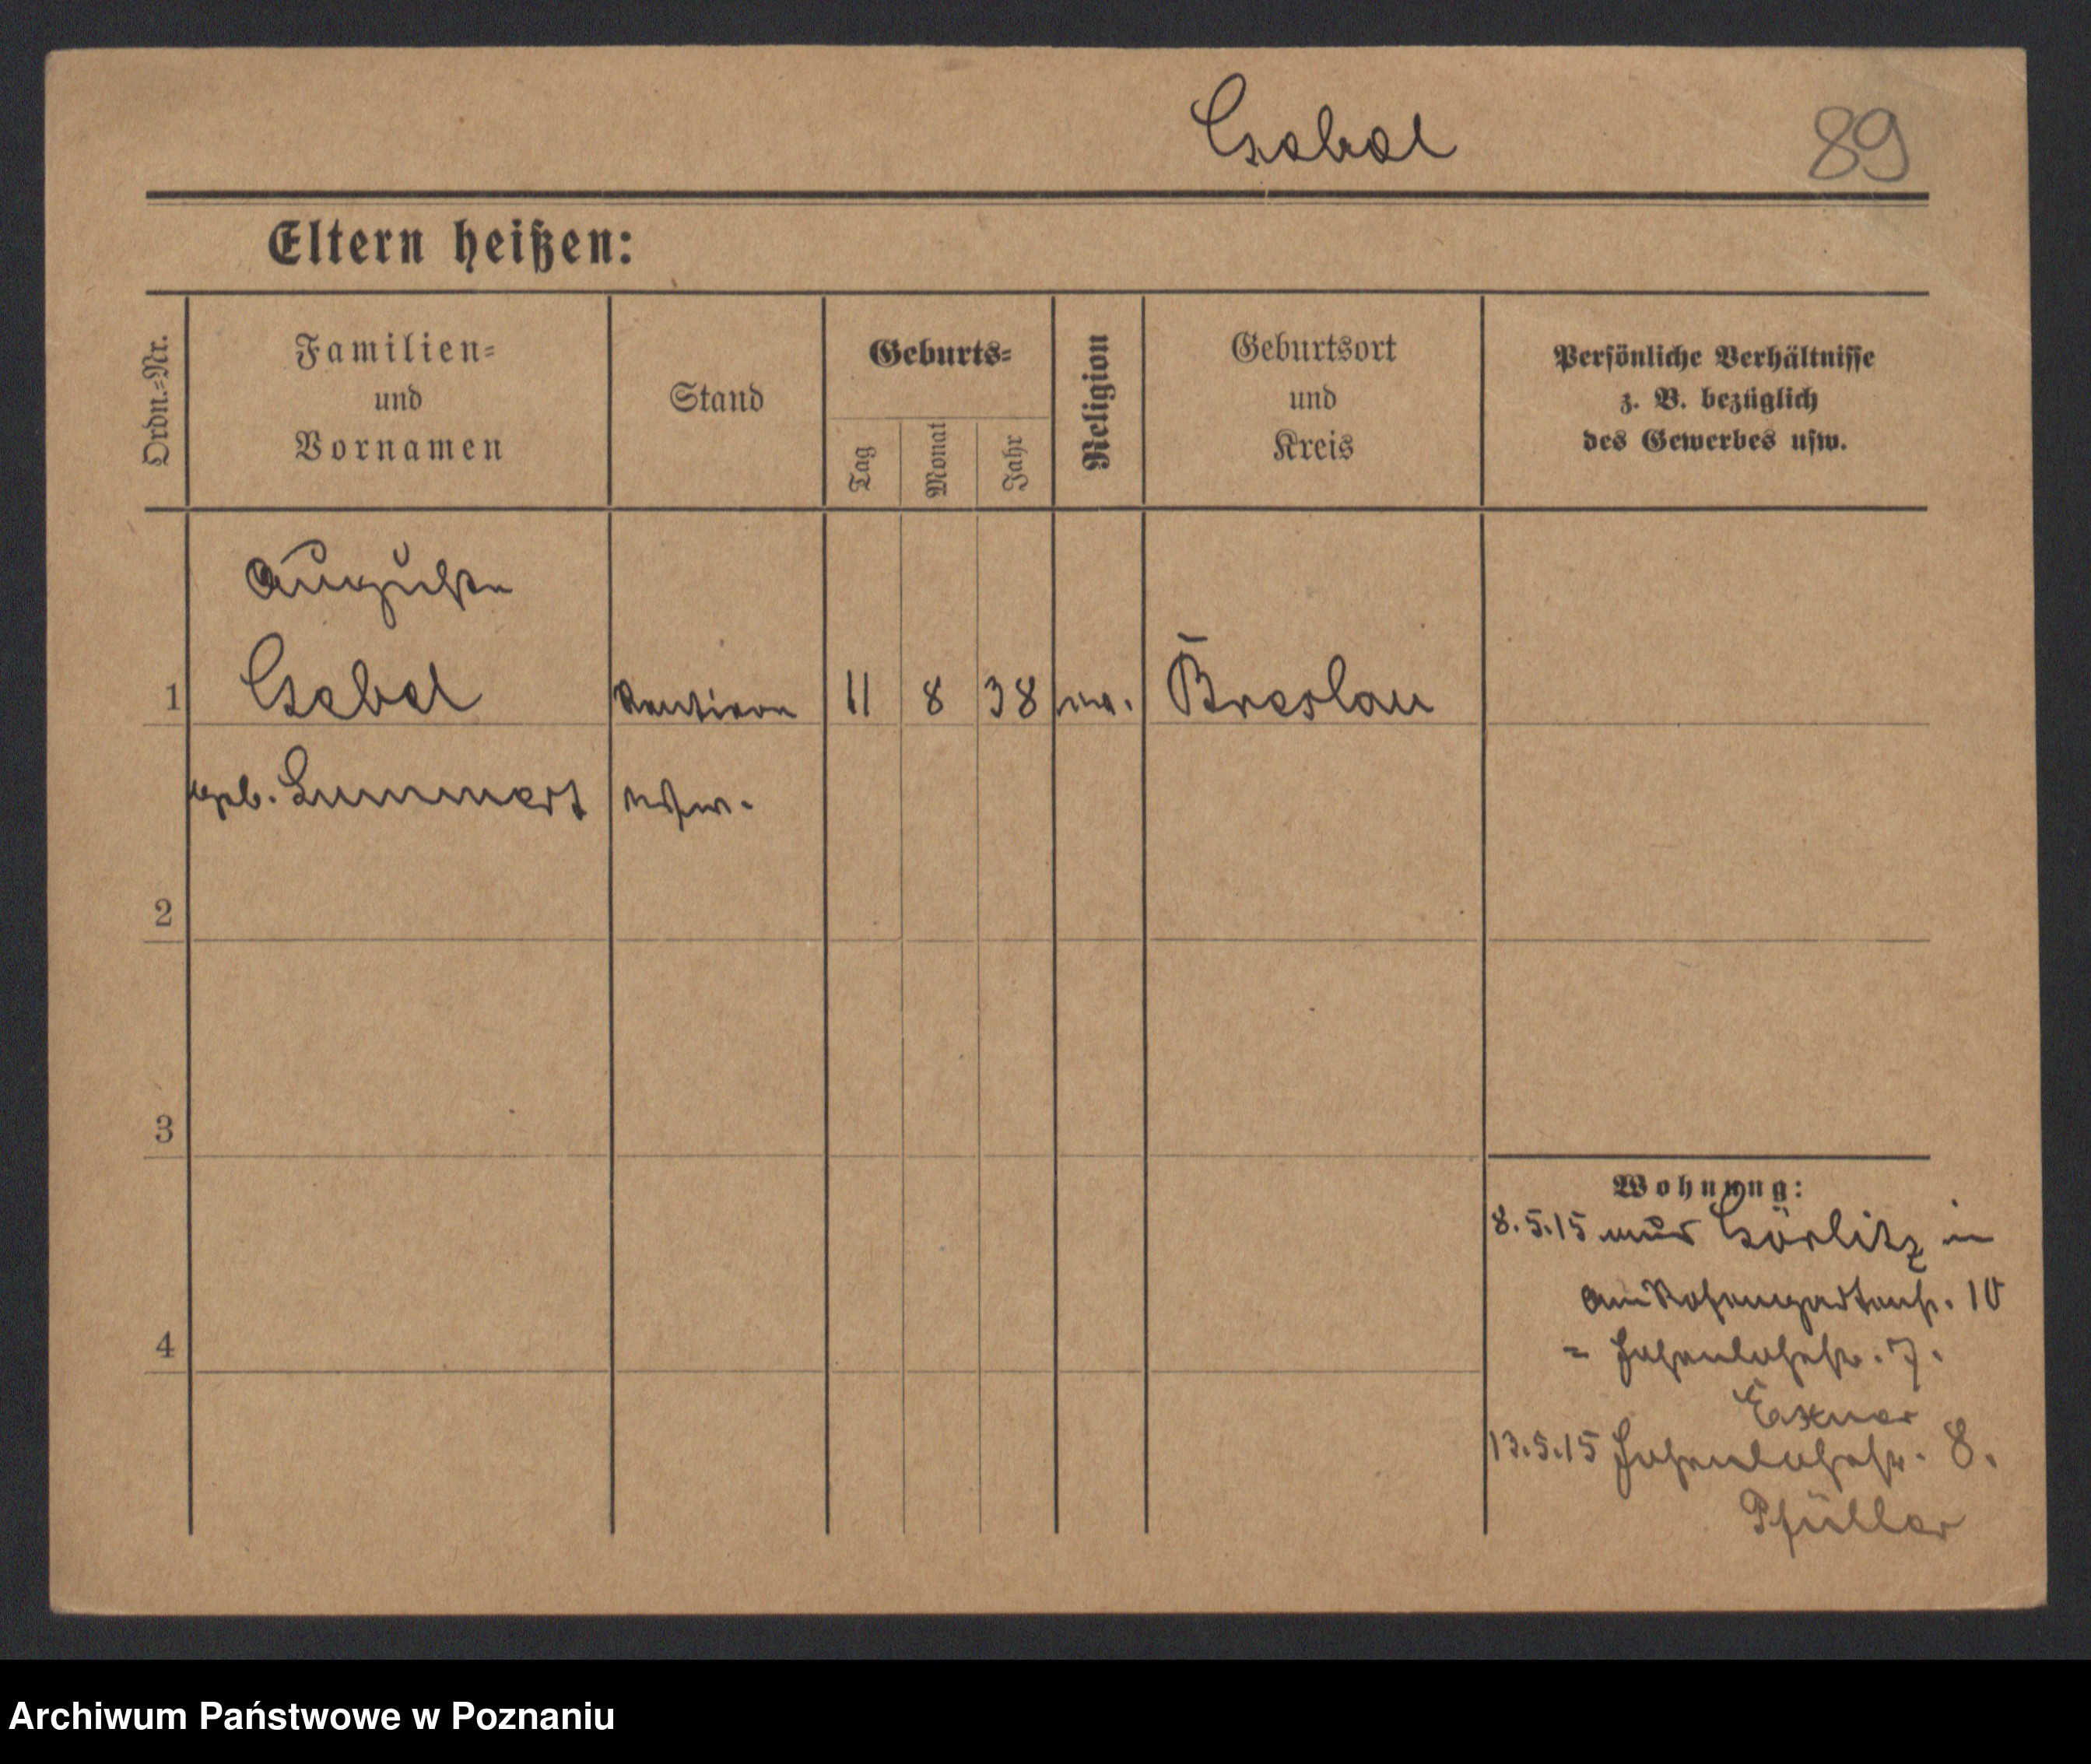 Gsabel
89
Eltern heißen:
Ordn.=Nr.
Familien=
und
Vornamen
Stand
Geburts=
Tag
Monat
Jahr
Religion
Geburtsort
und
Kreis
Persönliche Verhältnisse
z. B. bezüglich
des Gewerbes usw.
Auguste
1 Gsabel 11 8 38 Breslau
geb. Lummert
2
3
4
Wohnung:
8.5.15 aus Görlitz in
Am Rosengartenstr. 10
= Hohenlohestr. 7.
Exner
13.5.15 Hohenlohestr. 8.
Pfüller
Archiwum Państwowe w Poznaniu